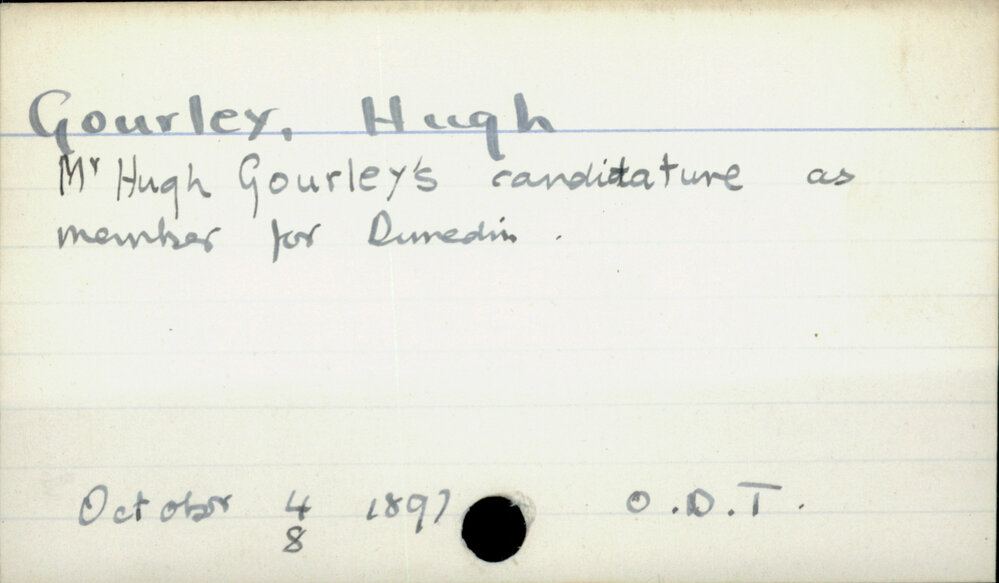 Gourley, Hugh
Mr Hugh Gourley's canditature as
member for Dunedin.
October 4 1897 O.D.T.
8